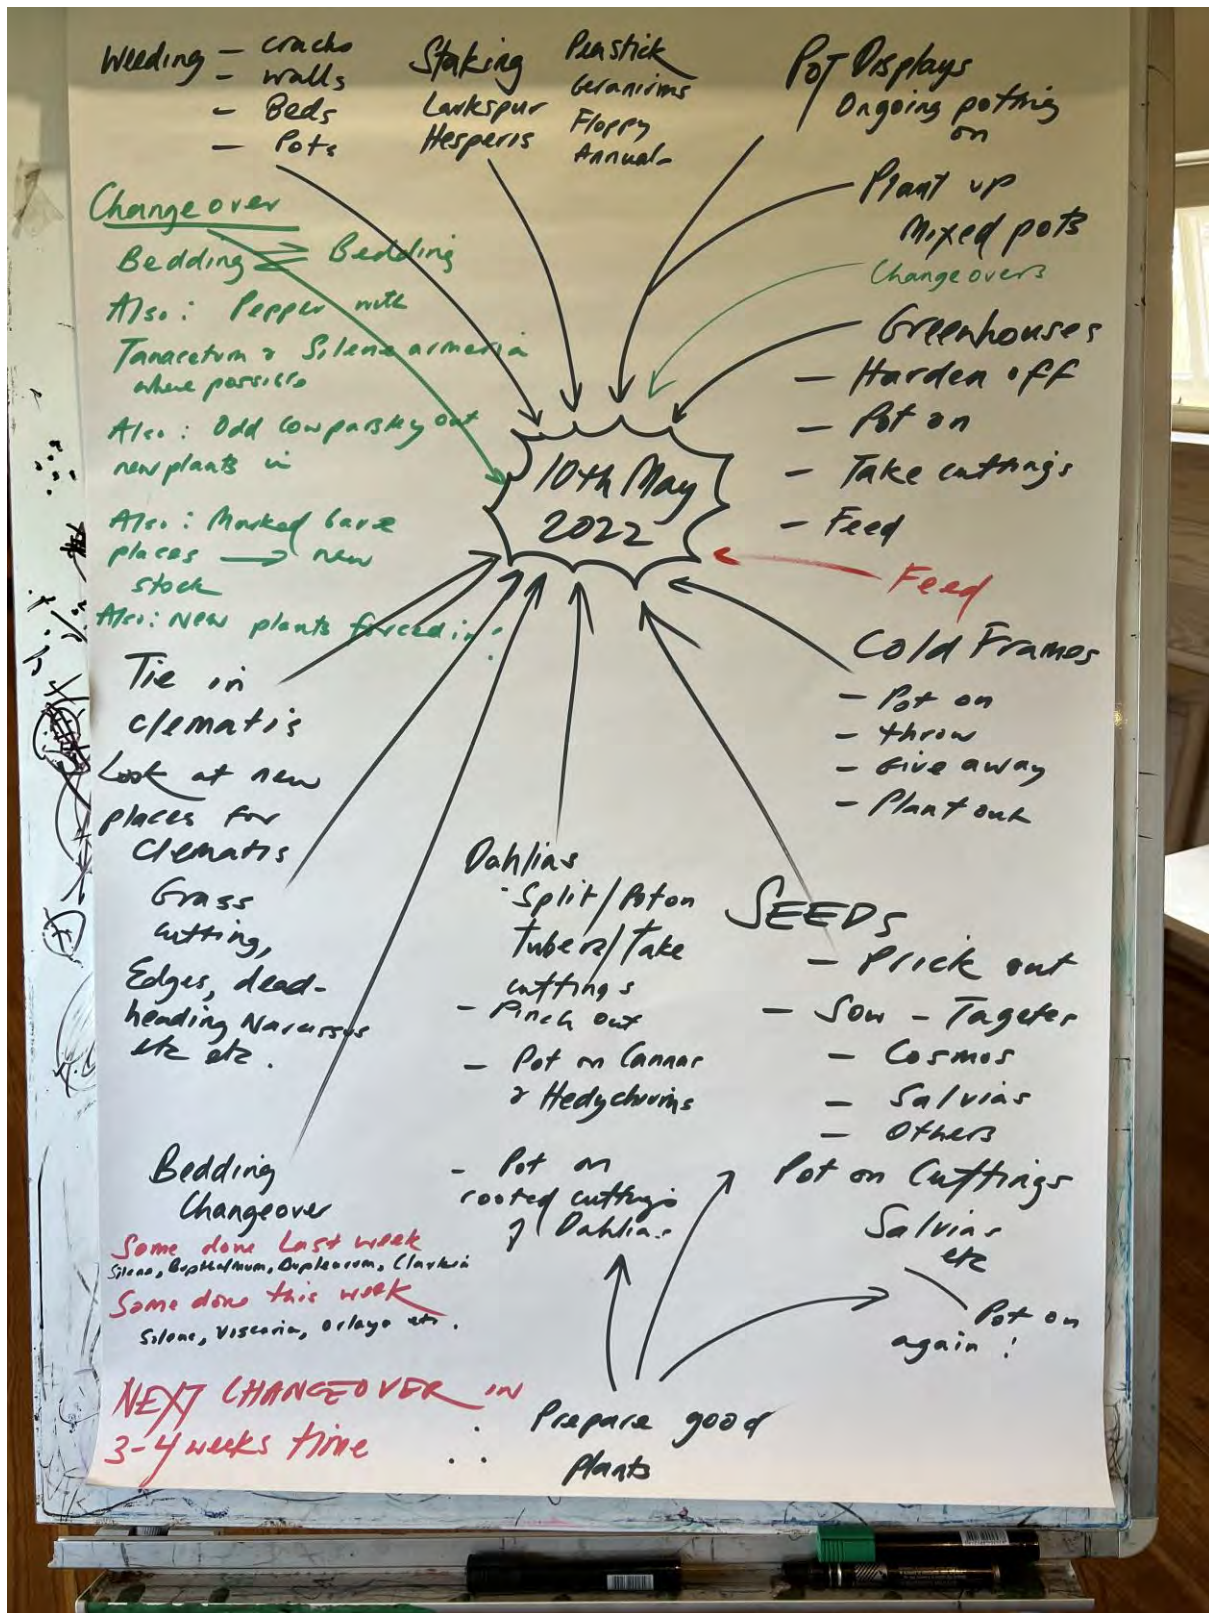 Weeding – cracks
– walls
– Beds
– Pots
Staking
Larkspur
Hesperis
Peastick
Geraniums
Floppy
Annuals
Pot Displays
Ongoing potting
on
Plant up
Mixed pots
Changeovers
Greenhouses
– Harden off
– Pot on
– Take cuttings
– Feed
Feed
Cold Frames
– Pot on
– throw
– Give away
– Plant out
Changeover
Bedding ⇌ Bedding
Also: Pepper with
Tanacetum & Silene armeria
where possible
Also: Odd cow parsley out
new plants in
Also: Marked bare
places → new
stock
Also: New plants forced in
10th May
2022
Tie in
clematis
Look at new
places for
Clematis
Grass
cutting,
Edges, dead-
heading Narcissus
etc etc.
Dahlias
Split/Pot on
tubers/Take
cuttings
– Pinch out
– Pot on Cannas
& Hedychiums
– Pot on
rooted cuttings
of Dahlias
SEEDS
– Prick out
– Sow – Tagetes
– Cosmos
– Salvias
– Others
Pot on Cuttings
Salvias
etc
Pot on
again!
Bedding
Changeover
Some done Last week
Silene, Bupthalmum, Bupleurum, Clarkia
Some done this week
Silene, Viscaria, Orlaya etc.
NEXT CHANGEOVER in
3-4 weeks time
Prepare good
plants